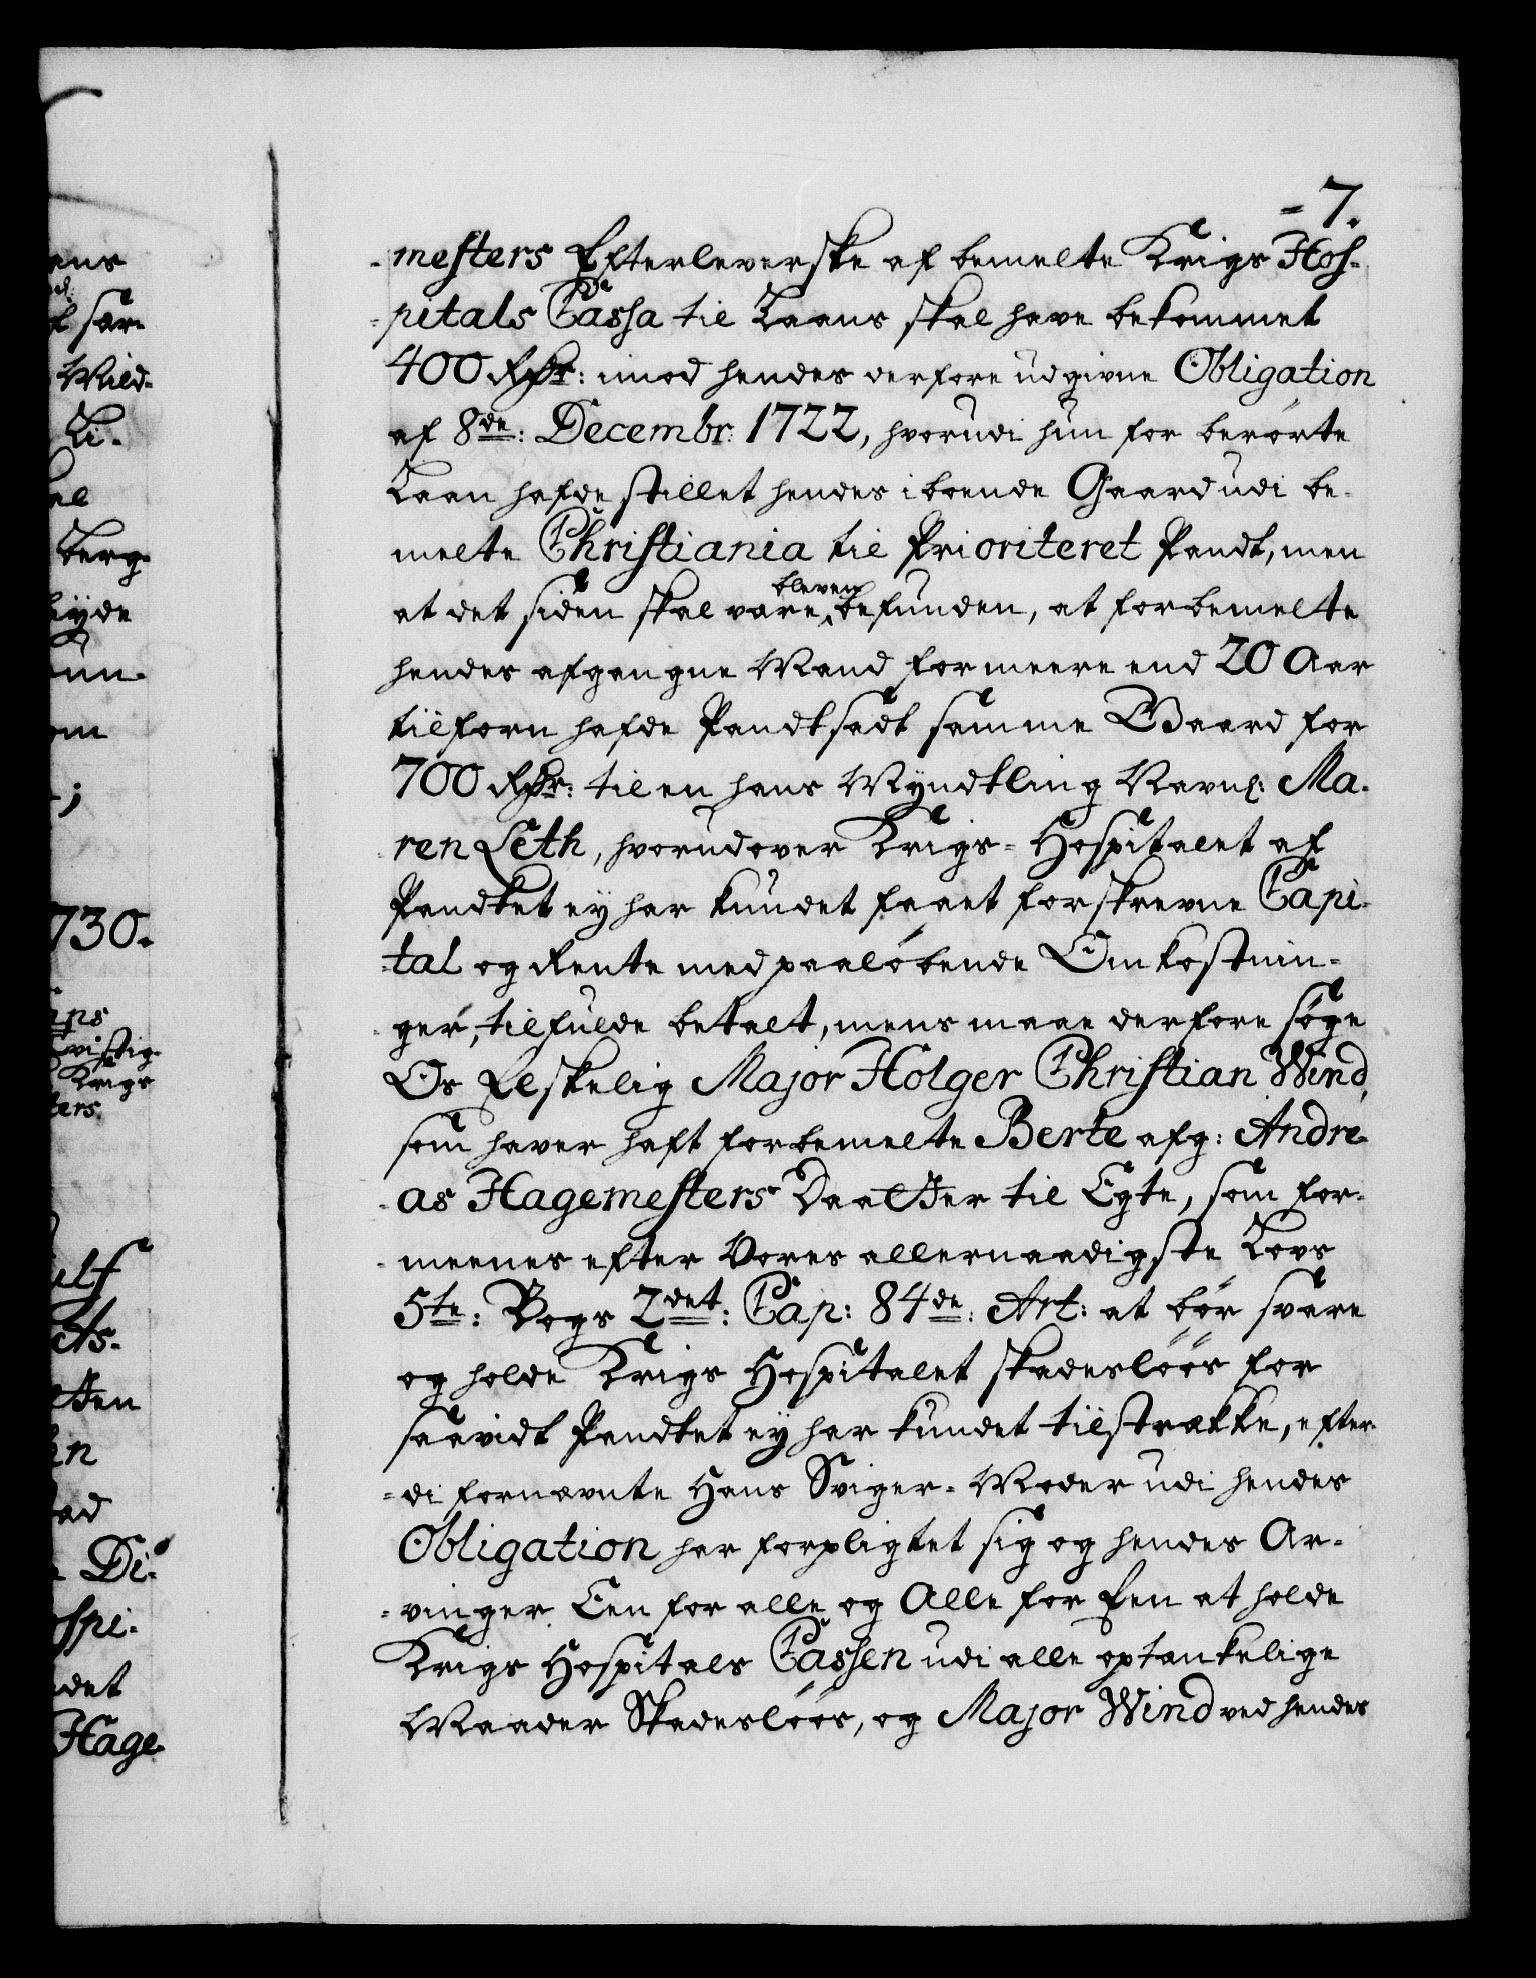 = 7.
-mesters Efterleverske af bemelte Krigs Hos-
-pitals Cassa til Laans skal have bekommet
400 Rdr: imod hendes derfore udgivne Obligation
af 8de: Decembr: 1722, hvorudi hun for berørte
Laan hafde stillet hendes iboende Gaard udi be-
melte Christiania til Prioriteret Pandt, men
at det siden skal være bleven befunden, at forbemelte
hendes afgangne Mand for meere end 20 Aar
tilforn hafde Pandtsadt samme Gaard for
700 Rdr: til en hans Myndtling Navnl: Ma-
-ren Leth, hvorudover Krigs-Hospitalet af
Pandtet ey har kundet faaet forskrevne Capi-
-tal og Rente med paaløbende Omkostnin-
-ger, tilfulde betalt, mens maae derfore søge
Os Elskelig Major Holger Christian Wind,
som haver haft forbemelte Berte afg: Andre-
-as Hagemesters Daatter til Egte, som for-
-meenes efter Vores allernaadigste Lovs
5te: Bogs 2det: Cap: 84de: Art: at bør svare
og holde Krigs Hospitalet skadesløös for
saavidt Pandtet ey har kundet tilstrække, efter-
-di fornævnte Hans Sviger-Moder udi hendes
Obligation har forpligtet sig og hendes Ar-
-vinger Een for alle og Alle for Een at holde
Krigs Hospitals Cassen udi alle optænkelige
Maader Skadesløös, og Major Wind ved hendes
ens
sær-
Mild-
Li-
el
berg-
eyde
un-
om
;
730.
vistig-
Krigs
ters
ulf
ets-
tten
en
ad
Di-
ospi-
det
Hage-